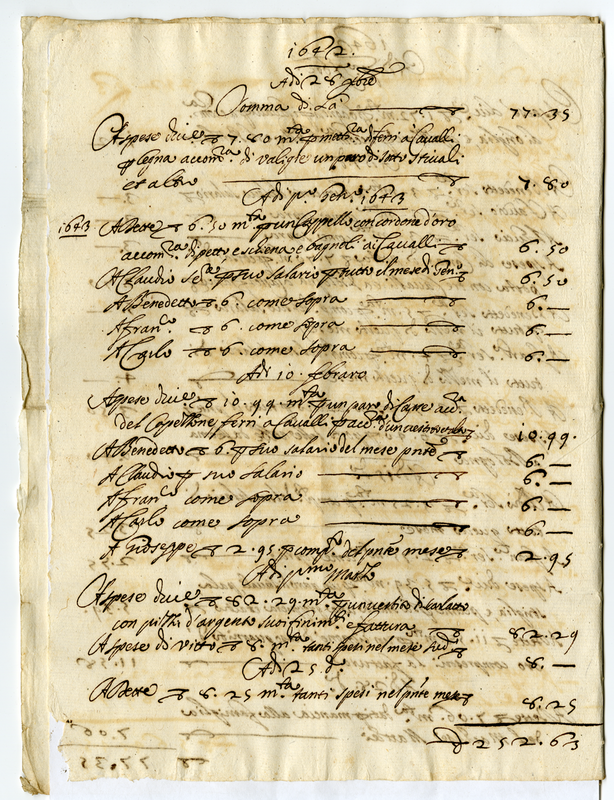 1642.
Adi 28 xbre
Somma di là 77.35
A spese diu.e 7.80 m.ta p metti.ra di ferri a Cavalli
p legna accom.ra di valigie un paro di sotto stivali
et altro 7.80
Adi p.o Gen.o 1643
1643 A dette 6.50 m.ta p un Cappello con cordone d'oro
accom.ra di petto e schiena e bagnoli ai Cavalli 6.50
A Claudio p suo salario p tutto il mese di Gen.o 6.50
A Benedetto 6. come sopra 6.—
A Fran.co 6. come sopra 6.—
A Carlo 6. come sopra 6.—
Adi 10. febraro
A spese diu.e 10.99. m.ta p un paro di Calze acc.ra
del Cappellone ferri a Cavalli p acc.ra 10.99.
A Benedetto 6. p suo salario del mese pnte 6.—
A Claudio p suo salario 6.—
A Fran.co come sopra 6.—
A Carlo come sopra 6.—
A Gioseppe 2.95 p comp.o del pnte mese 2.95
Adi pmo Marzo
A spese diu.e 82.29. m.ta p un vestito di scarlatto
con d'argento suoi finim.ti e fattura 82.29
A spese di vitto 8. m.ta tanti spesi nel mese 8.—
Adi 25 d.o
A dette 8.25 m.ta tanti spesi nel pnte mese 8.25
252.63